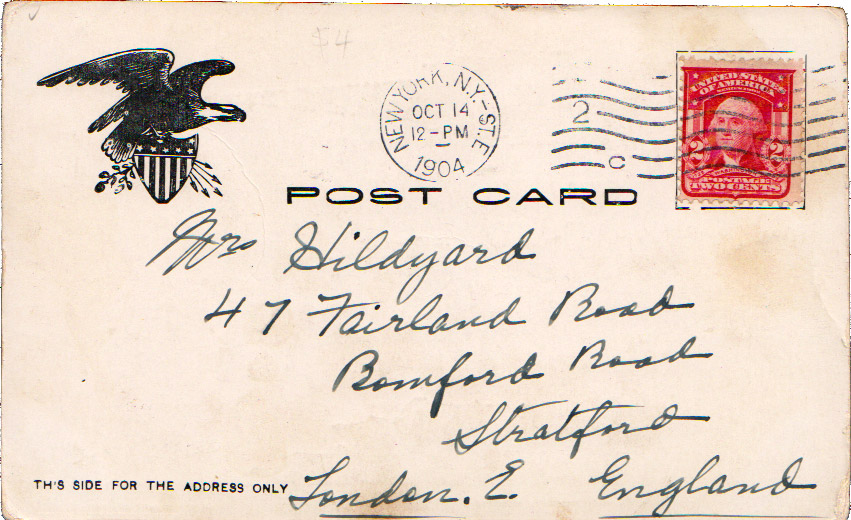 $4
NEW YORK, N.Y.-ST.E
OCT 14
12-PM
1904
2
C
UNITED STATES
OF AMERICA
2 2
POSTAGE
TWO CENTS
POST CARD
Mrs Hildyard
47 Fairland Road
Bomford Road
Stratford
London. E. England
TH'S SIDE FOR THE ADDRESS ONLY